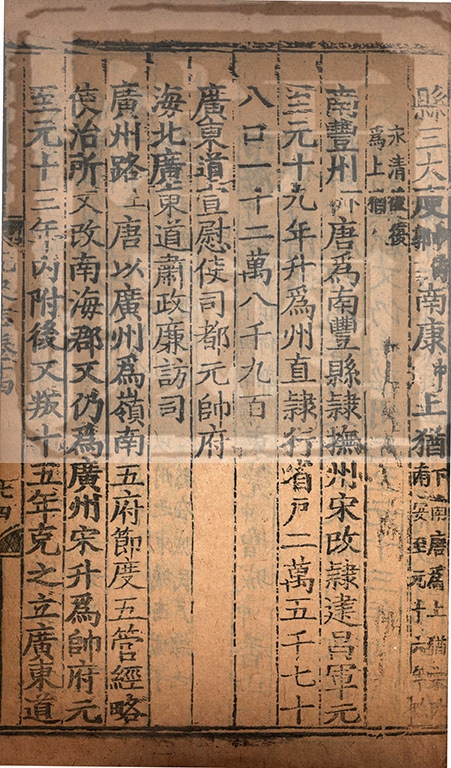 縣三大庾中南康中上猶下南唐爲上猶宋改南安至元十六年改
永清後復爲上猶
南豐州下唐爲南豐縣隸撫州宋改隸建昌軍元
至元十九年升爲州直隸行省戶二萬五千七十
八口一十二萬八千九百
廣東道宣慰使司都元帥府
海北廣東道肅政廉訪司
廣州路上唐以廣州爲嶺南五府節度五管經略
使治所又改南海郡又仍爲廣州宋升爲帥府元
至元十三年內附後又叛十五年克之立廣東道